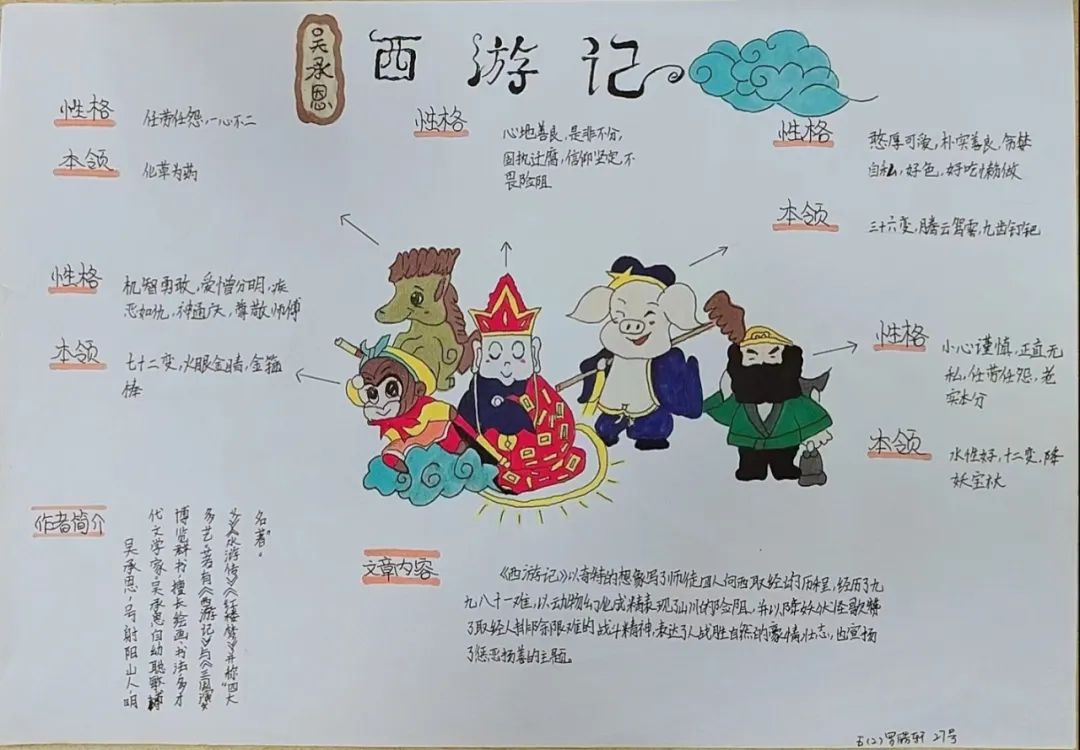 吴承恩
西游记
性格
任劳任怨,一心不二
本领
化草为药
性格
心地善良,是非不分,
固执迂腐,信仰坚定,不
畏险阻
性格
憨厚可爱,朴实善良,贪婪
自私,好色,好吃懒做
本领
三十六变,腾云驾雲,九齿钉耙
性格
机智勇敢,爱憎分明,疾
恶如仇,神通广大,尊敬师傅
本领
七十二变,火眼金睛,金箍
棒
性格
小心谨慎,正直无
私,任劳任怨,老
实本分
本领
水性好,十二变,降
妖宝杖
作者简介
吴承恩,号射阳山人,明
代文学家,吴承恩自幼聪敏
博览群书,擅长绘画、书法,多才
多艺,著有《西游记》与《三国演义
》《水浒传》《红楼梦》并称“四大
名著”。
文章内容
《西游记》以奇特的想象写了师徒四人向西取经的历程,经历了九
九八十一难,以动物幻化成精表现了山川的险阻,并以降妖伏怪歌赞
了取经人排除艰难的战斗精神,表达了人战胜自然的豪情壮志,也宣扬
了惩恶扬善的主题
五(2)罗 轩 27号